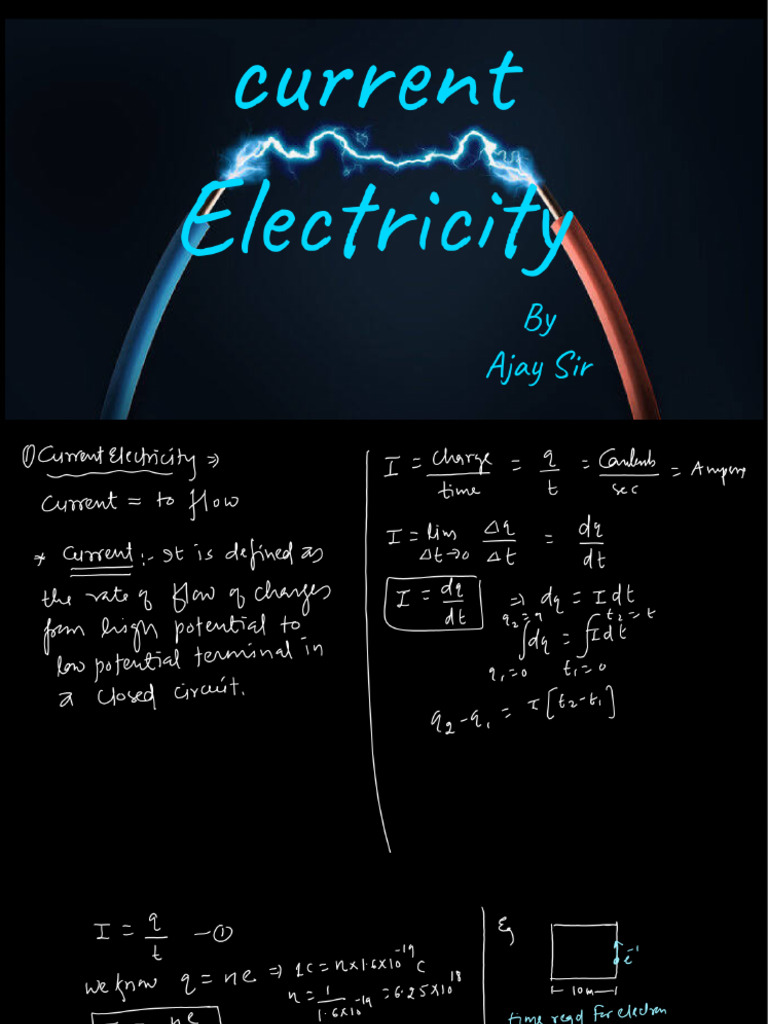 current
Electricity
By
Ajay Sir
① Current Electricity ⇒
Current = to flow
* Current :- It is defined as
the rate of flow of charges
from high potential to
low potential terminal in
a closed circuit.
I = charge / time = q / t = / sec = Ampere
I = lim Δt→0 Δq / Δt = dq / dt
I = dq / dt ⇒ dq = I dt
q₂=q t₂=t
∫dq = ∫I dt
q₁=0 t₁=0
q₂-q₁ = I [t₂-t₁]
I = q / t —①
we know q = ne ⇒ 1C = n×1.6×10⁻¹⁹ C
n = 1 / 1.6×10⁻¹⁹ = 6.25×10¹⁸
I = ne
Eg
e⁻¹
10m
time reqd for electron